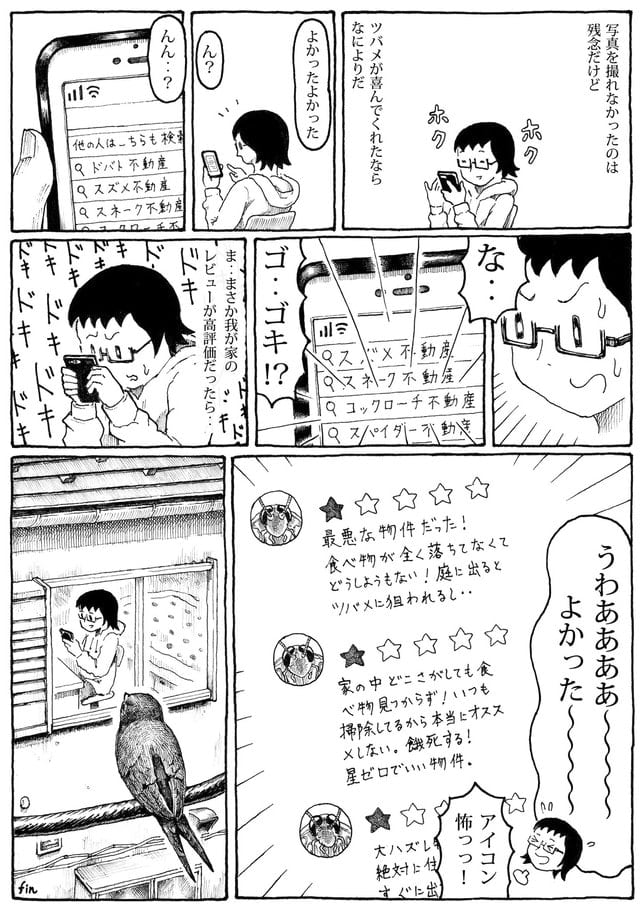 写真を撮れなかったのは
残念だけど
ツバメが喜んでくれたなら
なによりだ
ホク
ホク
よかったよかった
ん?
んん‥?
他の人はこちらも検索
ドバト不動産
スズメ不動産
スネーク不動産
な‥
スズメ不動産
スネーク不動産
コックローチ不動産
スパイダー不動産
ゴ‥ゴキ!?
ま‥まさか我が家の
レビューが高評価だったら‥
ドキ
ドキ
ドキ
ドキ
ドキ
ドキ
ドキ
うわああああ〜〜
よかった〜〜
最悪な物件だった!
食べ物が全く落ちてなくて
どうしようもない!庭に出ると
ツバメに狙われるし‥
家の中どこさがしても食
べ物見つからず!いつも
掃除してるから本当にオスス
メしない。餓死する!
星ゼロでいい物件。
大ハズレ
絶対に住
すぐに出
アイコン
怖っっ!
fin